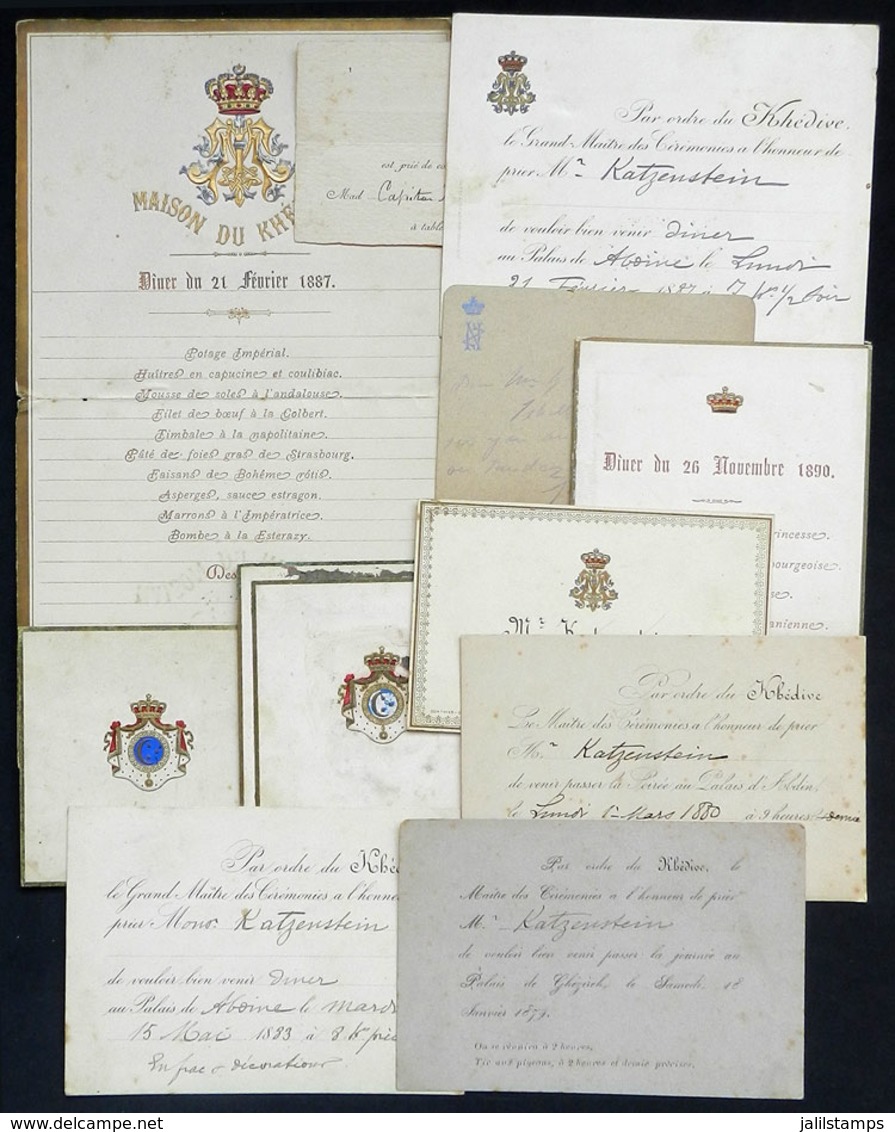 MAISON DU KHÉ
Dîner du 21 Février 1887.
Potage Impérial.
Huîtres en capucine et coulibiac.
Mousse de soles à l'andalouse.
Filet de bœuf à la Colbert.
Timbale à la napolitaine.
Pâté de foies gras de Strasbourg.
Faisans de Bohême rôtis.
Asperges, sauce estragon.
Marrons à l'Impératrice.
Bombe à la Esterazy.
Des
est prié de co
Mad Capitan
à table
Par ordre du Khédive,
le Grand Maître des Cérémonies a l'honneur de
prier Mr Katzenstein
de vouloir bien venir diner
au Palais de Abdine le Lundi
21 Février 1887 à 7 hrs 1/2 Soir
Dîner du 26 Novembre 1890.
rincesse.
bourgeoise.
se.
anienne.
Mr
Par ordre du Khédive
Le Maître des Cérémonies a l'honneur de prier
Mr Katzenstein
de venir passer la Soirée au Palais d'Abdin,
le Lundi 1er Mars 1880 à 9 heures & demie
Par ordre du Khé
le Grand Maître des Cérémonies a l'honne
prier Monsr Katzenstein
de vouloir bien venir diner
au Palais de Abdine le mard
15 Mai 1883 à 8 hrs préc
En frac & décorations
Par ordre du Khédive, le
Maître des Cérémonies a l'honneur de prier
Mr Katzenstein
de vouloir bien venir passer la journée au
Palais de Ghézireh, le Samedi, 18
Janvier 1879.
On se réunira à 2 heures,
Tir aux pigeons, à 2 heures et demie précises.
jalilstamps